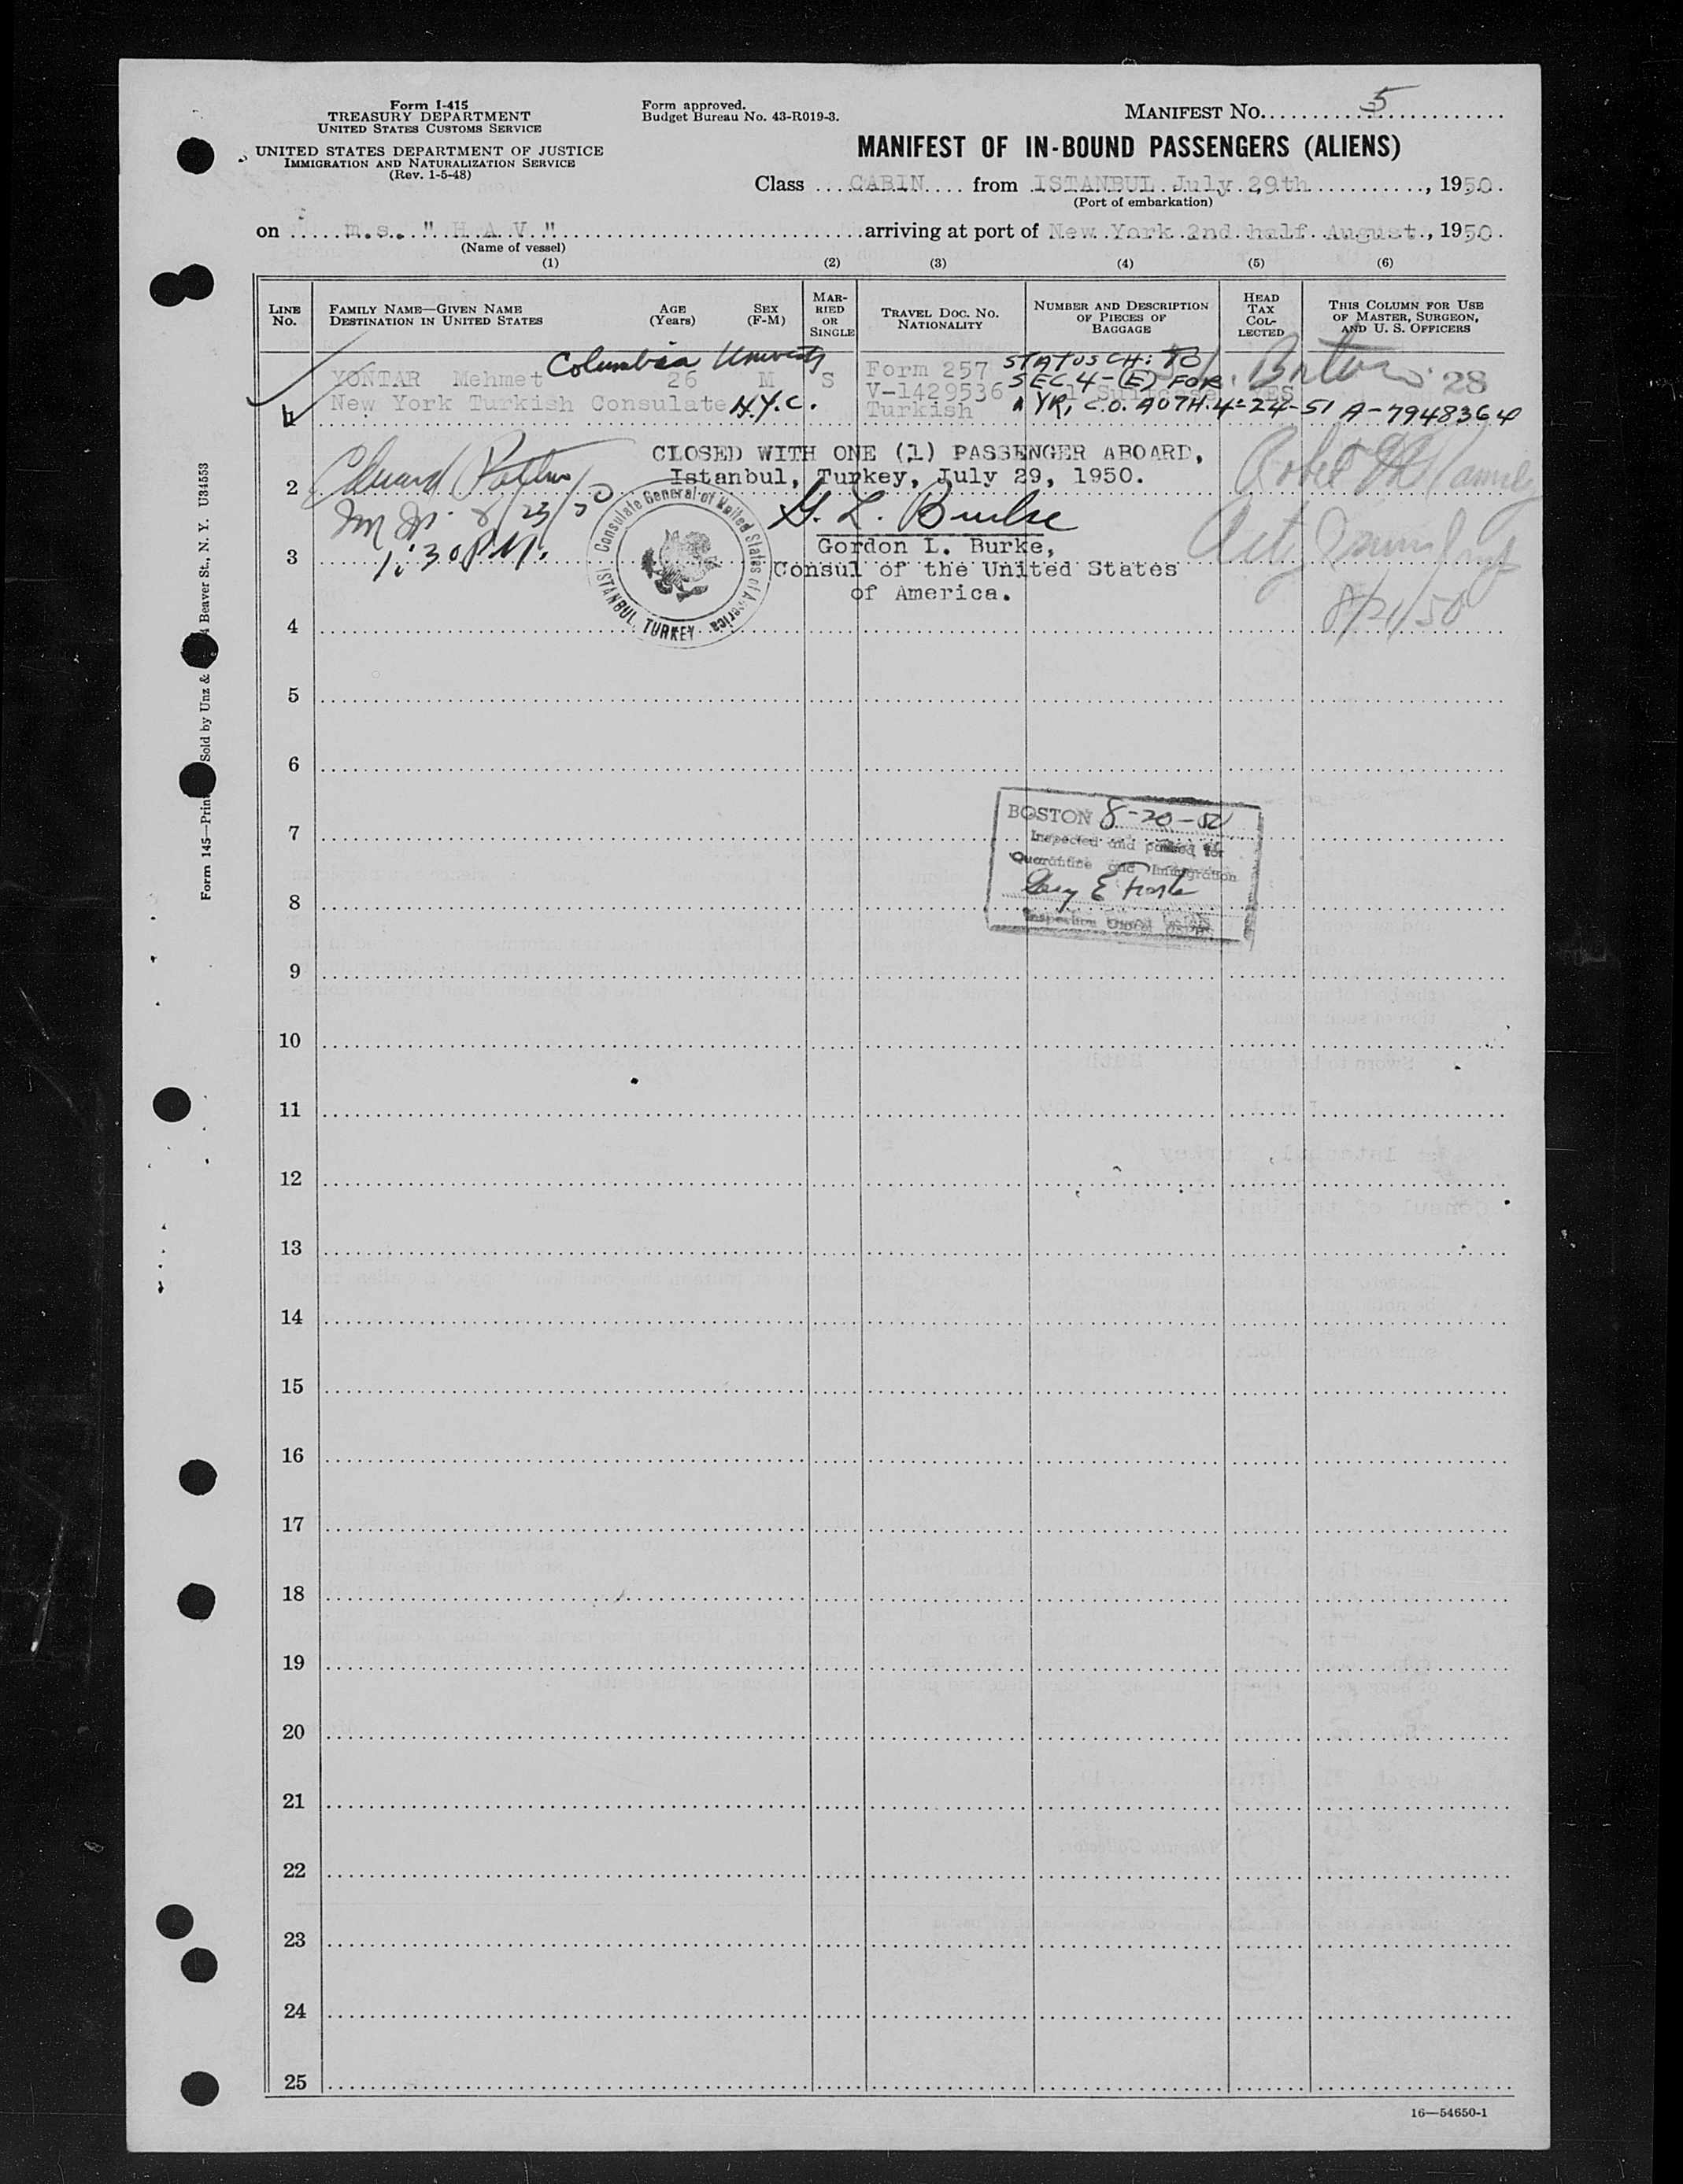 Form I-415
TREASURY DEPARTMENT
UNITED STATES CUSTOMS SERVICE
UNITED STATES DEPARTMENT OF JUSTICE
IMMIGRATION AND NATURALIZATION SERVICE
(Rev. 1-5-48)
Form approved.
Budget Bureau No. 43-R019-3.
MANIFEST NO. 5
MANIFEST OF IN-BOUND PASSENGERS (ALIENS)
Class CABIN from ISTANBUL July 29th, 1950
(Port of embarkation)
on m.s. "H A V" arriving at port of New York 2nd half August, 1950
(Name of vessel)
(1) (2) (3) (4) (5) (6)
LINE No.
FAMILY NAME—GIVEN NAME
DESTINATION IN UNITED STATES
AGE (Years)
SEX (F-M)
MARRIED OR SINGLE
TRAVEL DOC. NO.
NATIONALITY
NUMBER AND DESCRIPTION OF PIECES OF BAGGAGE
HEAD TAX COLLECTED
THIS COLUMN FOR USE OF MASTER, SURGEON, AND U. S. OFFICERS
Columbia University
YONTAR Mehmet 26 M S Form 257 STATUS CH: TO
V-1429536 SEC 4-(E) FOR 28
1 New York Turkish Consulate N.Y.C. Turkish 1 YR, C.O. AUTH. 4-24-51 A-7948364
CLOSED WITH ONE (1) PASSENGER ABOARD,
2 Istanbul, Turkey, July 29, 1950.
8/23/50
G. L. Burke
3 1:30 P.M. Gordon L. Burke,
Consul of the United States
of America.
8/21/50
Consulate General of United States of America
ISTANBUL, TURKEY
4
5
6
7
BOSTON 8-20-50
Inspected and passed for
Quarantine and Immigration
8
9
10
11
12
13
14
15
16
17
18
19
20
21
22
23
24
25
16—54650-1
Form 145—Print Sold by Unz & Beaver St., N. Y. U34553